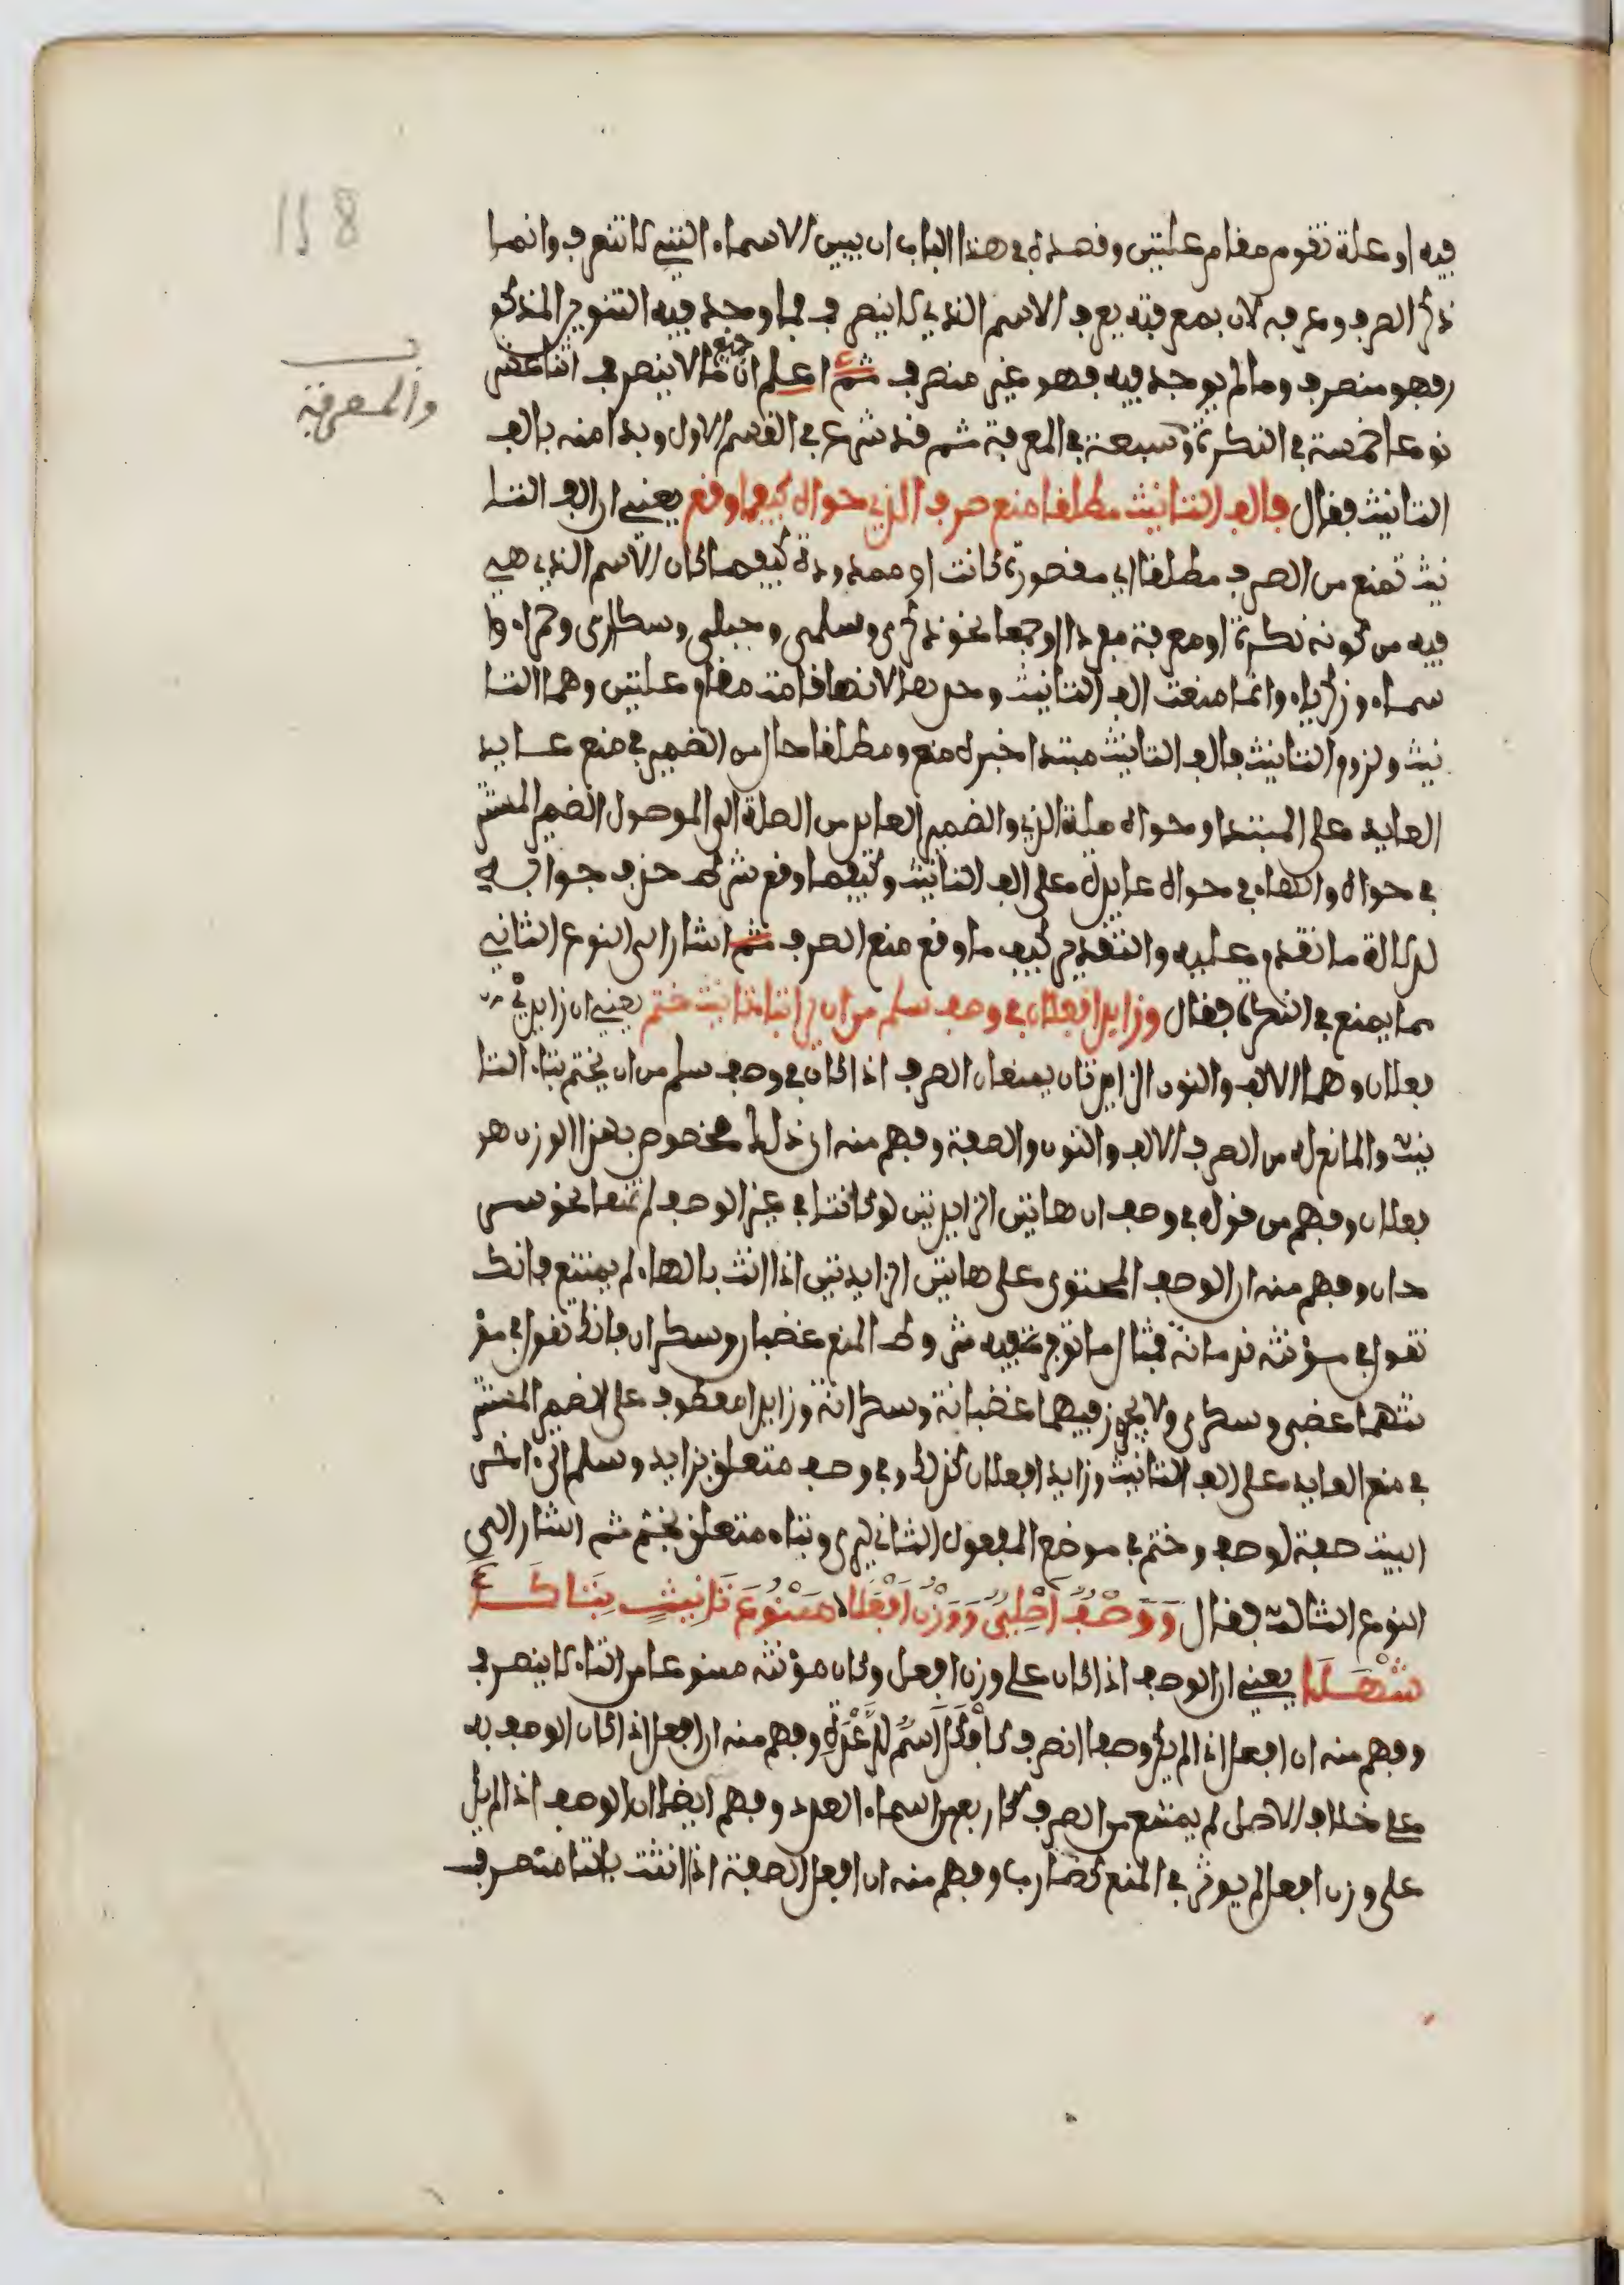 158
فيه او علة تقوم مقام علتين وقصده في هذا الباب ان يبين الاسماء التي لا تنصرف وانما
ذكر الصرف وعرفه لان بمعرفته يعرف الاسم الذي لا ينصرف فما وجد فيه التنوين المذكو
ر فهو منصرف وما لم يوجد فيه فهو غير منصرف ثم اعلم ان جميع ما لا ينصرف اثنا عشر
والمعرفة
نوعا خمسة في النكرة وسبعة في المعرفة ثم قد شرع في القسم الاول وبدا منه بالف
التانيث فقال فالف التانيث مطلقا منع صرف الذي حواه كيفما وقع يعني ان الف التا
نيث تمنع من الصرف مطلقا اي مقصورة كانت او ممدودة كيفما كان الاسم الذي هي
فيه من كونه نكرة او معرفة مفردا او جمعا نحو ذكرى وسلمى وحبلى وسكارى وحمراء وا
سماء وزكرياء وانما منعت الف التانيث وحدها لانها قامت مقام علتين وهما التا
نيث ولزوم التانيث فالف التانيث مبتدا خبره منع ومطلقا حال من الضمير في منع عايد
العايد على المبتدا وحواه صلة الذي والضمير العايد من الصلة الى الموصول الضمير المستتر
في حواه والهاء في حواه عايدة على الف التانيث وكيفما وقع شرط حذف جوابه
لدلالة ما تقدم عليه والتقدير كيف ما وقع منع الصرف ثم اشار الى النوع الثاني
مما يمنع في النكرة فقال وزايدا فعلان في وصف سلم من ان يرى بتاء تانيث ختم يعني ان زايدي
فعلان وهما الالف والنون الزايدتان يمنعان الصرف اذا كان في وصف سلم من ان يختم بتاء التا
نيث والمانع له من الصرف الالف والنون والصفة وفهم منه ان ذلك مخصوص بهذا الوزن هو
فعلان وفهم من قوله في وصف ان هاتين الزايدتين لو كانتا في غير الوصف لم تمنعا نحو سر
حان وفهم منه ان الوصف المحتوى على هاتين الزايدتين اذا انث بالهاء لم يمتنع فانك
تقول في مؤنثه ندمانة فمثال ما توجد فيه شروط المنع غضبان وسكران فانك تقول في مؤ
نثهما غضبى وسكرى ولا يجوز فيهما غضبانة وسكرانة وزايدا معطوف على الضمير المستتر
في منع العايد على الف التانيث وزايدا فعلان كذلك وفي وصف متعلق بزايد وسلم الى اخر
البيت صفة لوصف وختم في موضع المفعول الثاني ليرى وبتاء متعلق بختم ثم اشار الى
النوع الثالث فقال وَوَصْفٌ اَصْلِيٌّ وَوَزْنُ اَفْعَلَا مَمْنُوعَ تَانِيثٍ بِتَا كَـ
ـاَشْهَلَا يعني ان الوصف اذا كان على وزن افعل وكان مؤنثه ممنوعا من التاء لا ينصرف
وفهم منه ان افعل اذا لم يكن وصفا انصرف كافكل اسم للرعدة وفهم منه ان افعل اذا كان الوصف به
على خلاف الاصل لم يمتنع من الصرف كاربع من اسماء العدد وفهم ايضا ان الوصف اذا لم يكن
على وزن افعل لم يوثر في المنع كضارب وفهم منه ان افعل الصفة اذا انثت بالتا منصرف